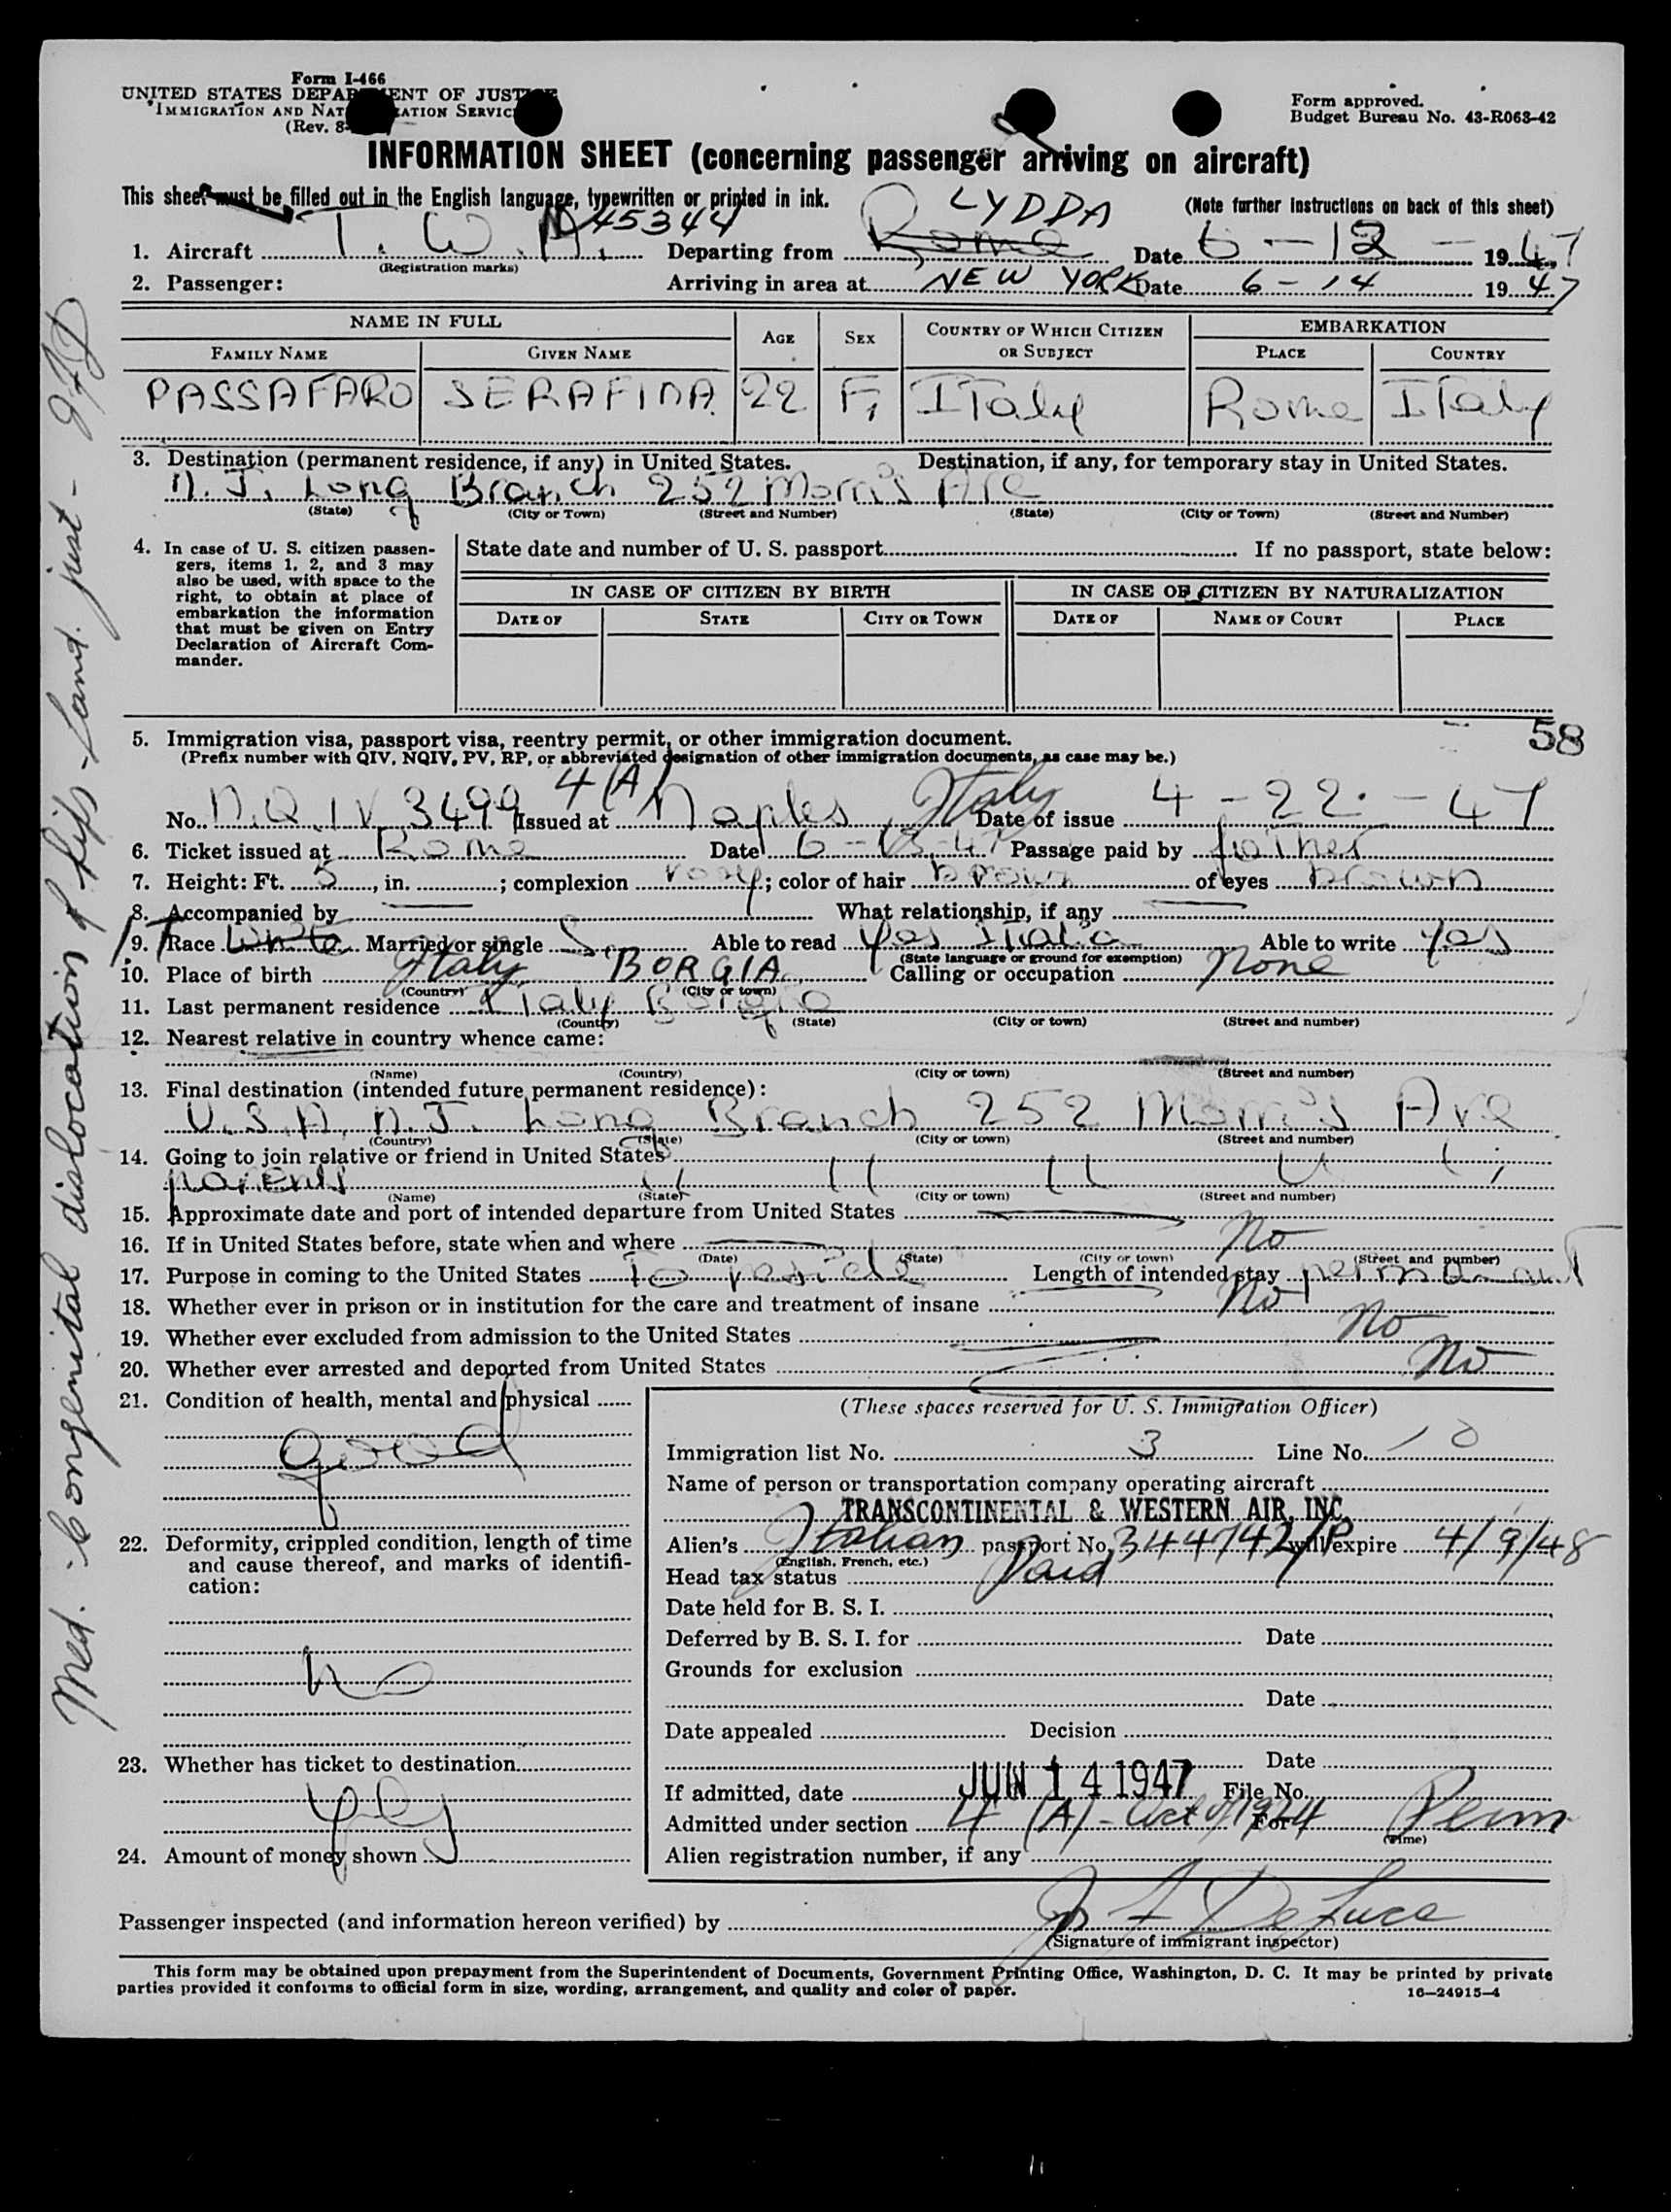 Form I-466
UNITED STATES DEPARTMENT OF JUSTICE
IMMIGRATION AND NATURALIZATION SERVICE
(Rev. 8-
Form approved.
Budget Bureau No. 43-R063-42
INFORMATION SHEET (concerning passenger arriving on aircraft)
This sheet must be filled out in the English language, typewritten or printed in ink.
(Note further instructions on back of this sheet)
1. Aircraft T.W.A. N45344 Departing from Rome LYDDA Date 6-12-1947
(Registration marks)
2. Passenger: Arriving in area at NEW YORK Date 6-14 1947
NAME IN FULL AGE SEX COUNTRY OF WHICH CITIZEN OR SUBJECT EMBARKATION
FAMILY NAME GIVEN NAME PLACE COUNTRY
PASSAFARO SERAFINA 22 F, ITaly Rome ITaly
3. Destination (permanent residence, if any) in United States. Destination, if any, for temporary stay in United States.
N.J. Long Branch 252 Morris Ave
(State) (City or Town) (Street and Number) (State) (City or Town) (Street and Number)
4. In case of U. S. citizen passengers, items 1, 2, and 3 may also be used, with space to the right, to obtain at place of embarkation the information that must be given on Entry Declaration of Aircraft Commander.
State date and number of U. S. passport If no passport, state below:
IN CASE OF CITIZEN BY BIRTH IN CASE OF CITIZEN BY NATURALIZATION
DATE OF STATE CITY OR TOWN DATE OF NAME OF COURT PLACE
58
5. Immigration visa, passport visa, reentry permit, or other immigration document.
(Prefix number with QIV, NQIV, PV, RP, or abbreviated designation of other immigration documents, as case may be.)
No. N.Q.I.V. 3499 4(A) Issued at Naples Italy Date of issue 4-22-47
6. Ticket issued at Rome Date 6-13-47 Passage paid by father
7. Height: Ft. 5, in. ; complexion rosy; color of hair brown of eyes brown
8. Accompanied by — What relationship, if any —
9. IT Race White Married or single S. Able to read Yes Italia Able to write yes
(State language or ground for exemption)
10. Place of birth Italy BORGIA Calling or occupation none
(Country) (City or town)
11. Last permanent residence Italy Borgia
(Country) (State) (City or town) (Street and number)
12. Nearest relative in country whence came:
(Name) (Country) (City or town) (Street and number)
13. Final destination (intended future permanent residence):
U.S.A. N.J. Long Branch 252 Morris Ave
(Country) (State) (City or town) (Street and number)
14. Going to join relative or friend in United States
parents " " " " "
(Name) (State) (City or town) (Street and number)
15. Approximate date and port of intended departure from United States —
16. If in United States before, state when and where — No
(Date) (State) (City or town) (Street and number)
17. Purpose in coming to the United States To reside Length of intended stay permanant
18. Whether ever in prison or in institution for the care and treatment of insane No
19. Whether ever excluded from admission to the United States — No
20. Whether ever arrested and deported from United States No
21. Condition of health, mental and physical
good
22. Deformity, crippled condition, length of time and cause thereof, and marks of identification:
no
23. Whether has ticket to destination
yes
24. Amount of money shown
(These spaces reserved for U. S. Immigration Officer)
Immigration list No. 3 Line No. 10
Name of person or transportation company operating aircraft
TRANSCONTINENTAL & WESTERN AIR, INC.
Alien's Italian passport No. 344742/P will expire 4/9/48
(English, French, etc.)
Head tax status Paid
Date held for B. S. I.
Deferred by B. S. I. for Date
Grounds for exclusion
Date
Date appealed Decision
Date
If admitted, date JUN 14 1947 File No.
Admitted under section 4 (A) - Act of 1924 For Perm
(Time)
Alien registration number, if any
Passenger inspected (and information hereon verified) by De Luca
(Signature of immigrant inspector)
This form may be obtained upon prepayment from the Superintendent of Documents, Government Printing Office, Washington, D. C. It may be printed by private
parties provided it conforms to official form in size, wording, arrangement, and quality and color of paper.
16—24915-4
Med. - Congenital dislocation of hips - Land. just -